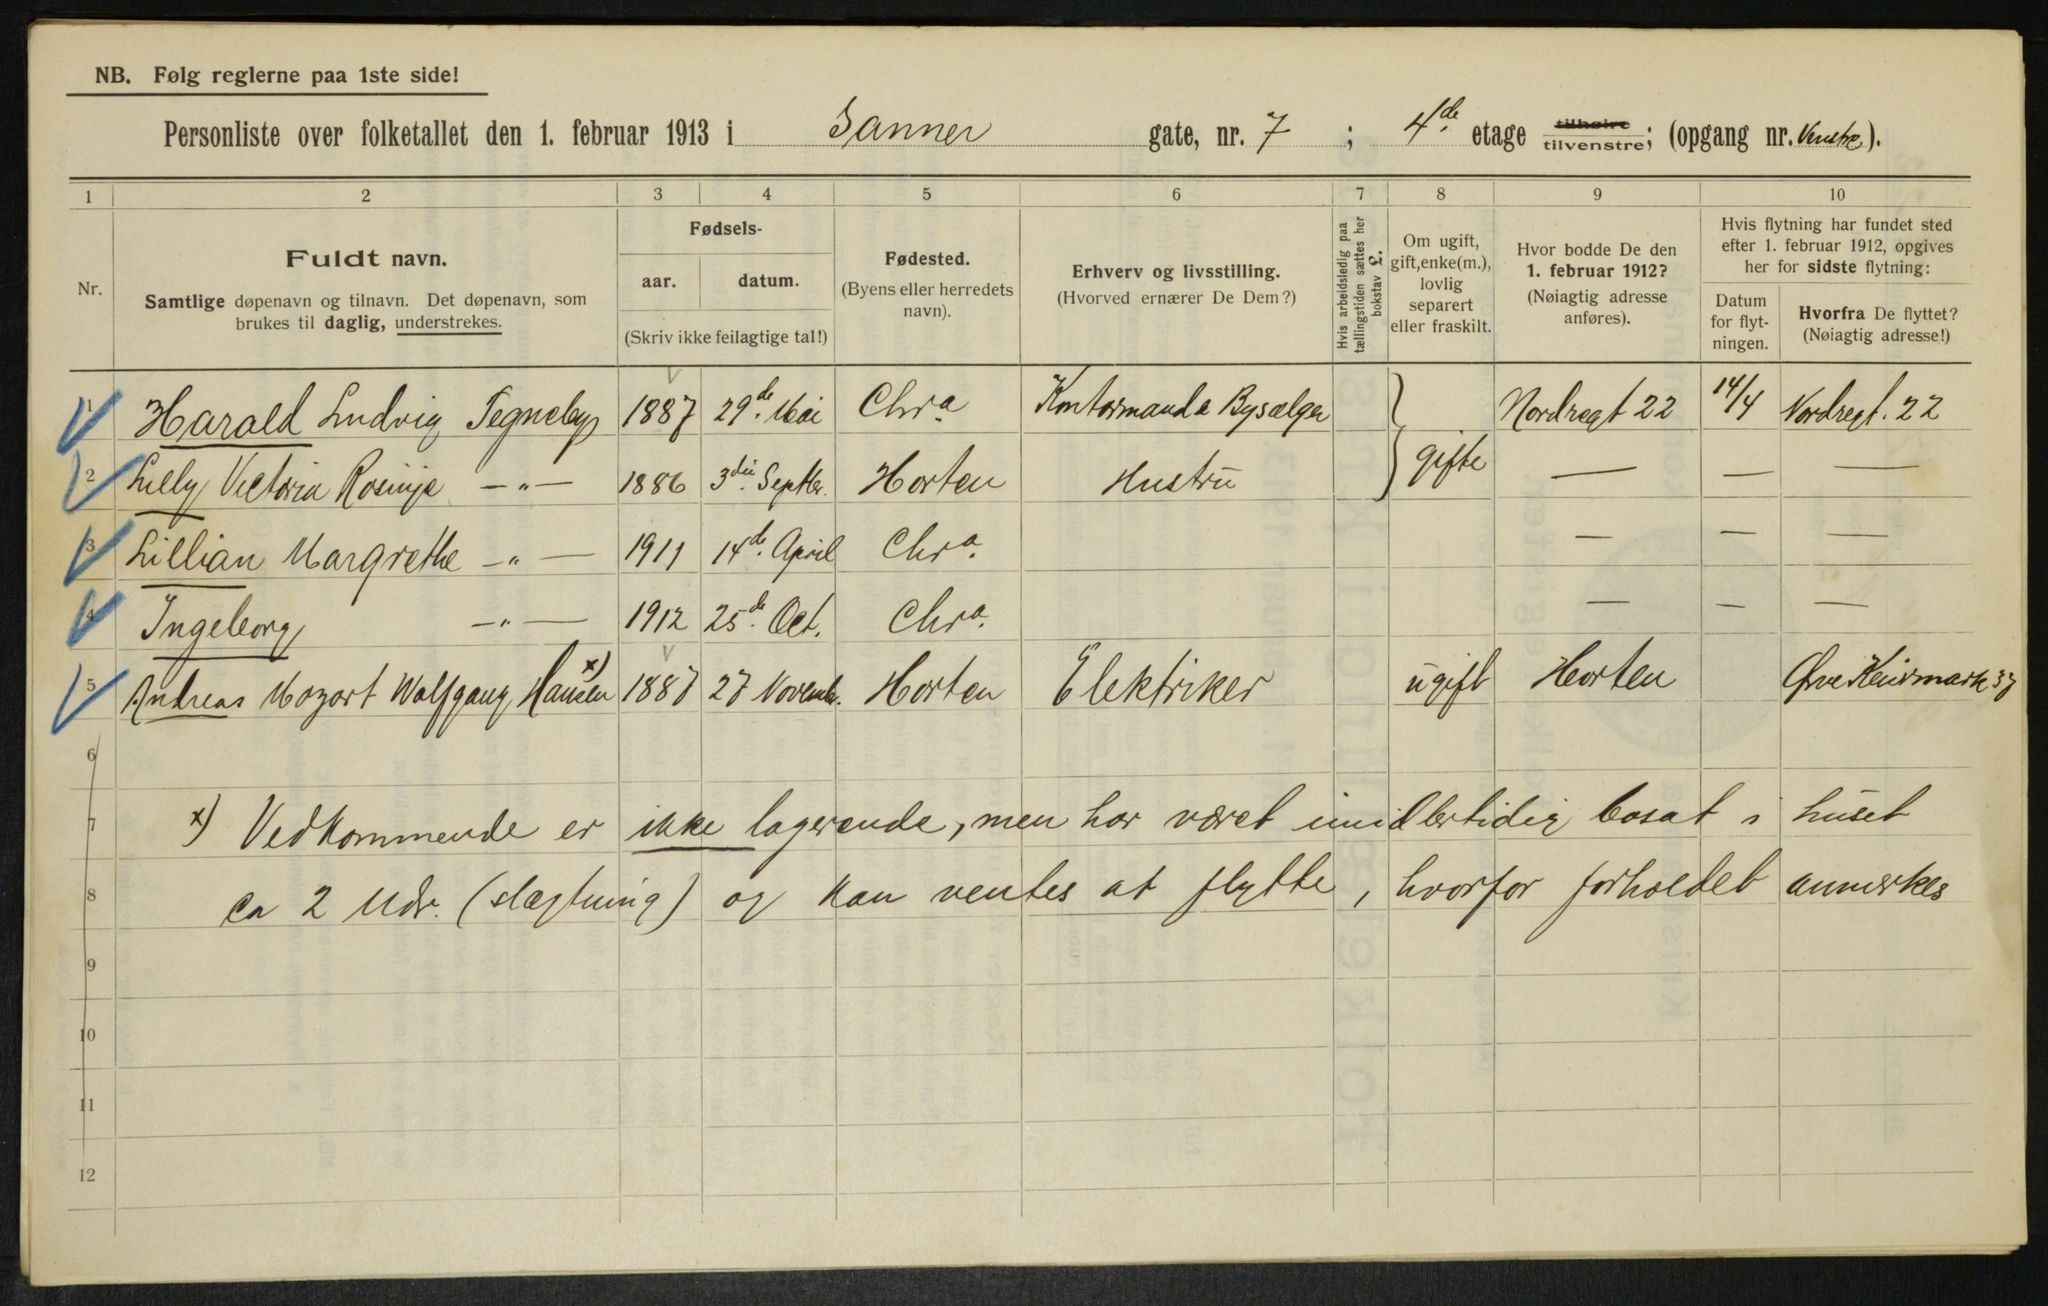 NB. Følg reglerne paa 1ste side!
Personliste over folketallet den 1. februar 1913 i Sanner gate, nr. 7 ; 4de etage tilhøire tilvenstre; (opgang nr. Venstre).
1 2 3 4 5 6 7 8 9 10
Nr.
Fuldt navn.
Samtlige døpenavn og tilnavn. Det døpenavn, som
brukes til daglig, understrekes.
Fødsels-
aar. datum.
(Skriv ikke feilagtige tal!)
Fødested.
(Byens eller herredets
navn).
Erhverv og livsstilling.
(Hvorved ernærer De Dem?)
Hvis arbeidsledig paa
tællingstiden sættes her
bokstav L.
Om ugift,
gift, enke(m.),
lovlig
separert
eller fraskilt.
Hvor bodde De den
1. februar 1912?
(Nøiagtig adresse
anføres).
Hvis flytning har fundet sted
efter 1. februar 1912, opgives
her for sidste flytning:
Datum
for flyt-
ningen.
Hvorfra De flyttet?
(Nøiagtig adresse!)
1 Harald Ludvig Tegneby 1887 29de Mai Chra. Kontormand & Bysælger Nordregt 22 14/4 Nordregt. 22
2 Lilly Victoria — " — 1886 3die Septbr. Horten Hustru gifte — — —
3 Lillian Margrethe — " — 1911 14de April Chra. — — —
4 Ingeborg — " — 1912 25de Oct. Chra. — — —
5 Andreas Mozart Wolfgang Hansen x) 1887 27 Novembr. Horten Elektriker ugift Horten Øvre 37
6
7 x) Vedkommende er ikke logerende, men har været imidlertidig bosat i huset
8 ca 2 Mdr. (slægtning) og kan ventes at flytte, hvorfor forholdet anmerkes
9
10
11
12